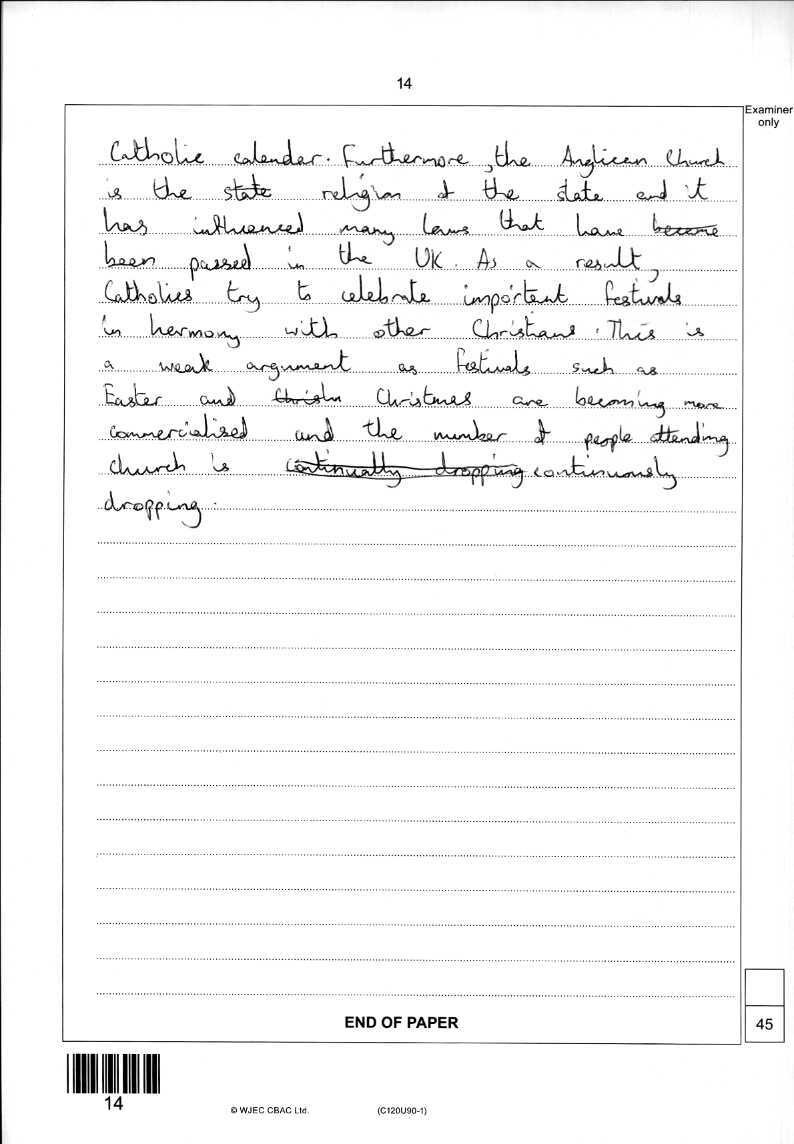 14
Examiner
only
Catholic calendar. Furthermore, the Anglican Church
is the state religion of the state and it
has influenced many laws that have become
been passed in the UK. As a result,
Catholics try to celebrate important festivals
in harmony with other Christians. This is
a weak argument as festivals such as
Easter and Christm Christmas are becoming more
commercialised and the number of people attending
church is continually dropping continuously
dropping.
END OF PAPER
45
14
© WJEC CBAC Ltd.
(C120U90-1)